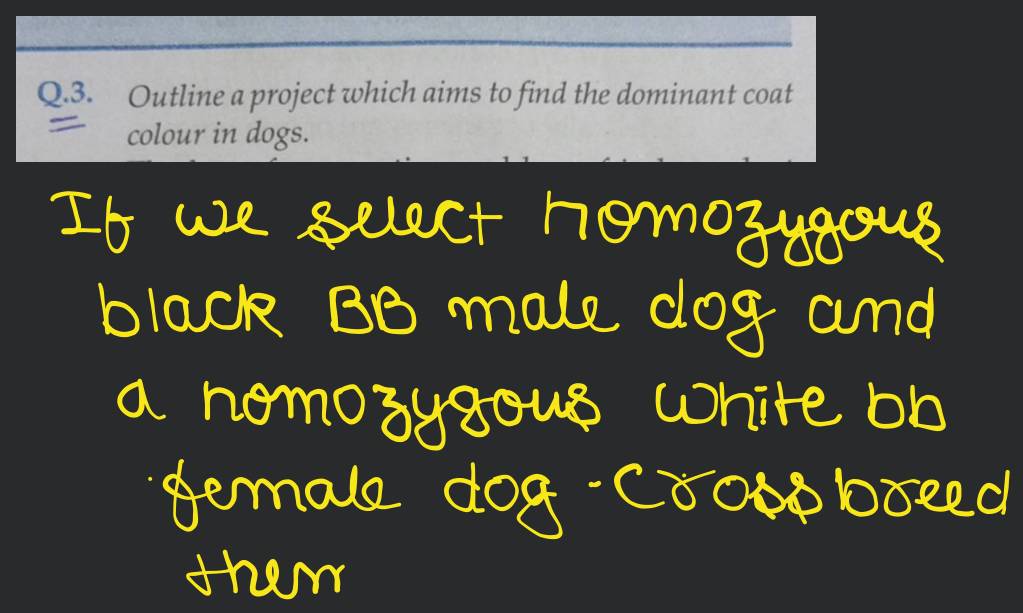 Q.3. Outline a project which aims to find the dominant coat
colour in dogs.
If we select homozygous
black BB male dog and
a homozygous white bb
female dog - Cross breed
them